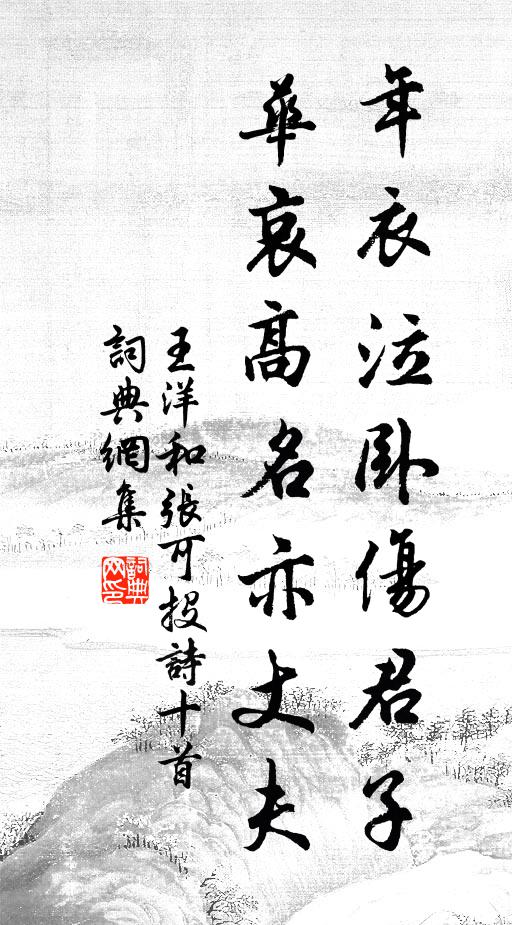 年衣泣卧傷君子
華哀高名亦丈夫
王洋和張可投詩十首
詞典網集
詞典網印